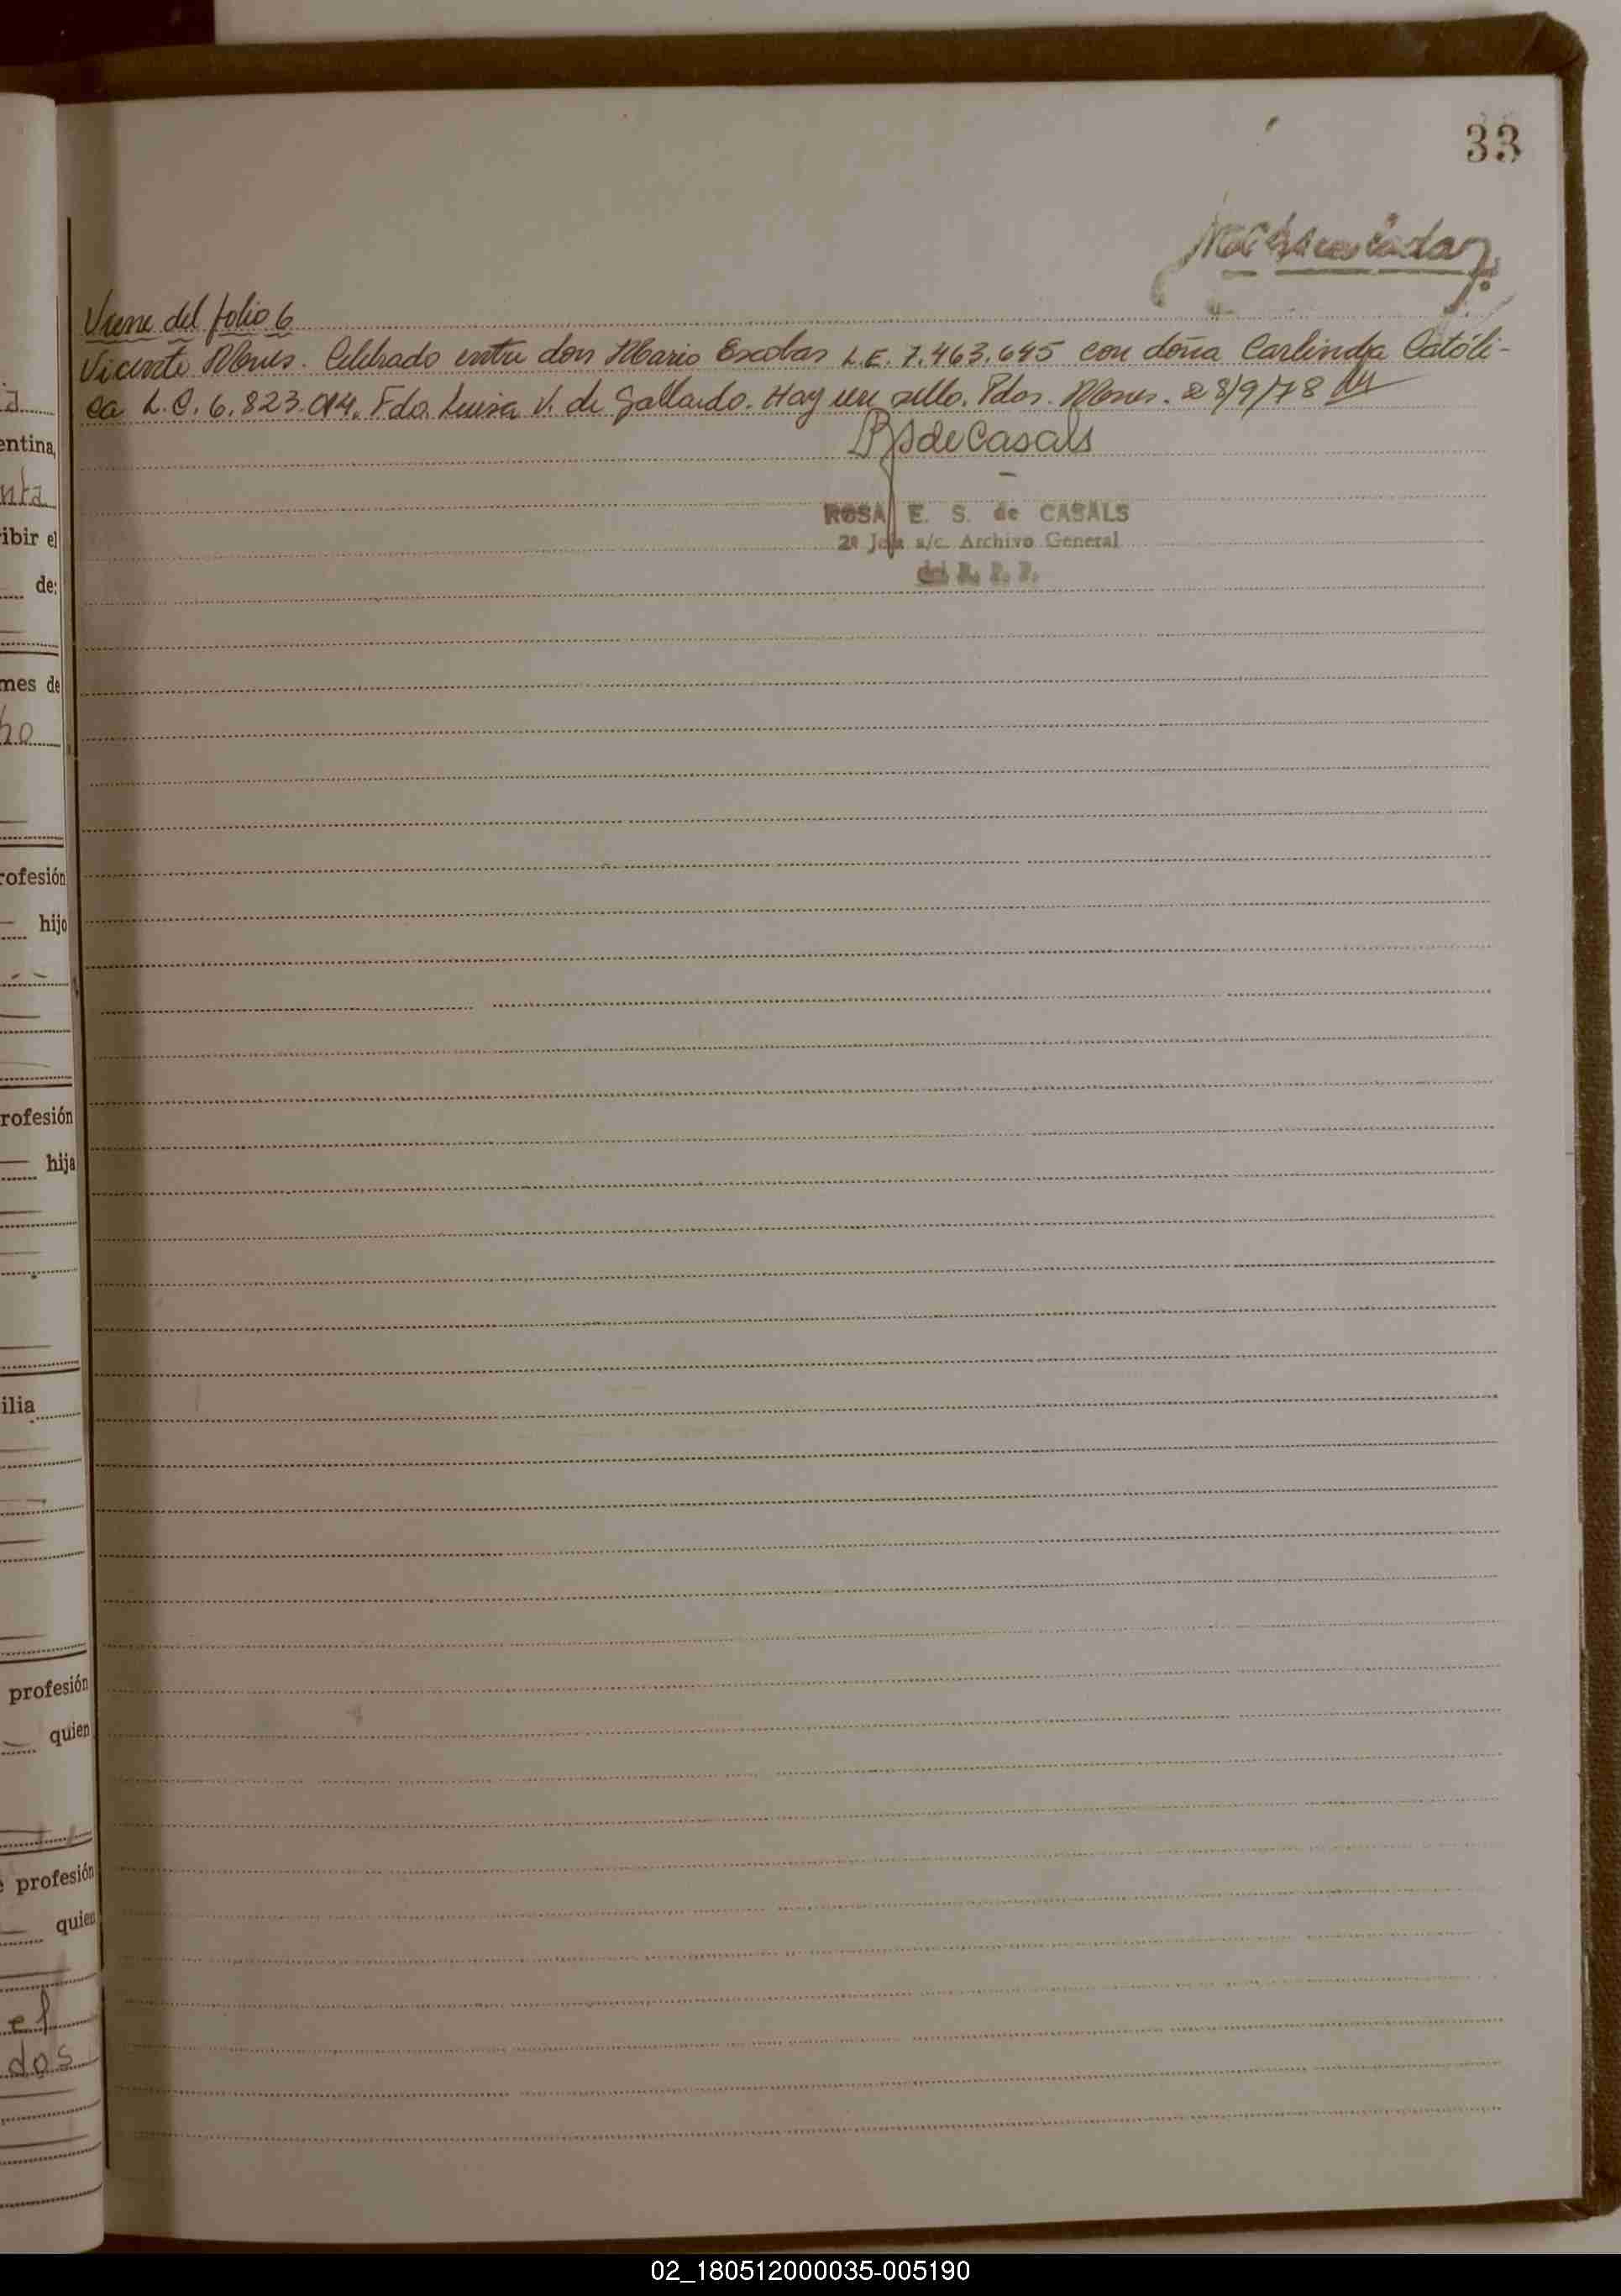 33
Viene del folio 6
Vicente Mones. Celebrado entre don Mario Escobar L.E. 7.463.645 con doña Carlinda Católi-
ca L.C. 6.823.014. Fdo. Luisa V. de Gallardo. Hay un sello. Pdas. Mnes. 28/9/78
RS de Casals
ROSA E. S. de CASALS
2ª Jefa a/c. Archivo General
del R. P. P.
entina,
nta
ibir el
de:
mes de
ho
rofesión
hijo
rofesión
hija
ilia
profesión
quien
profesión
quien
el
dos
02_180512000035-005190